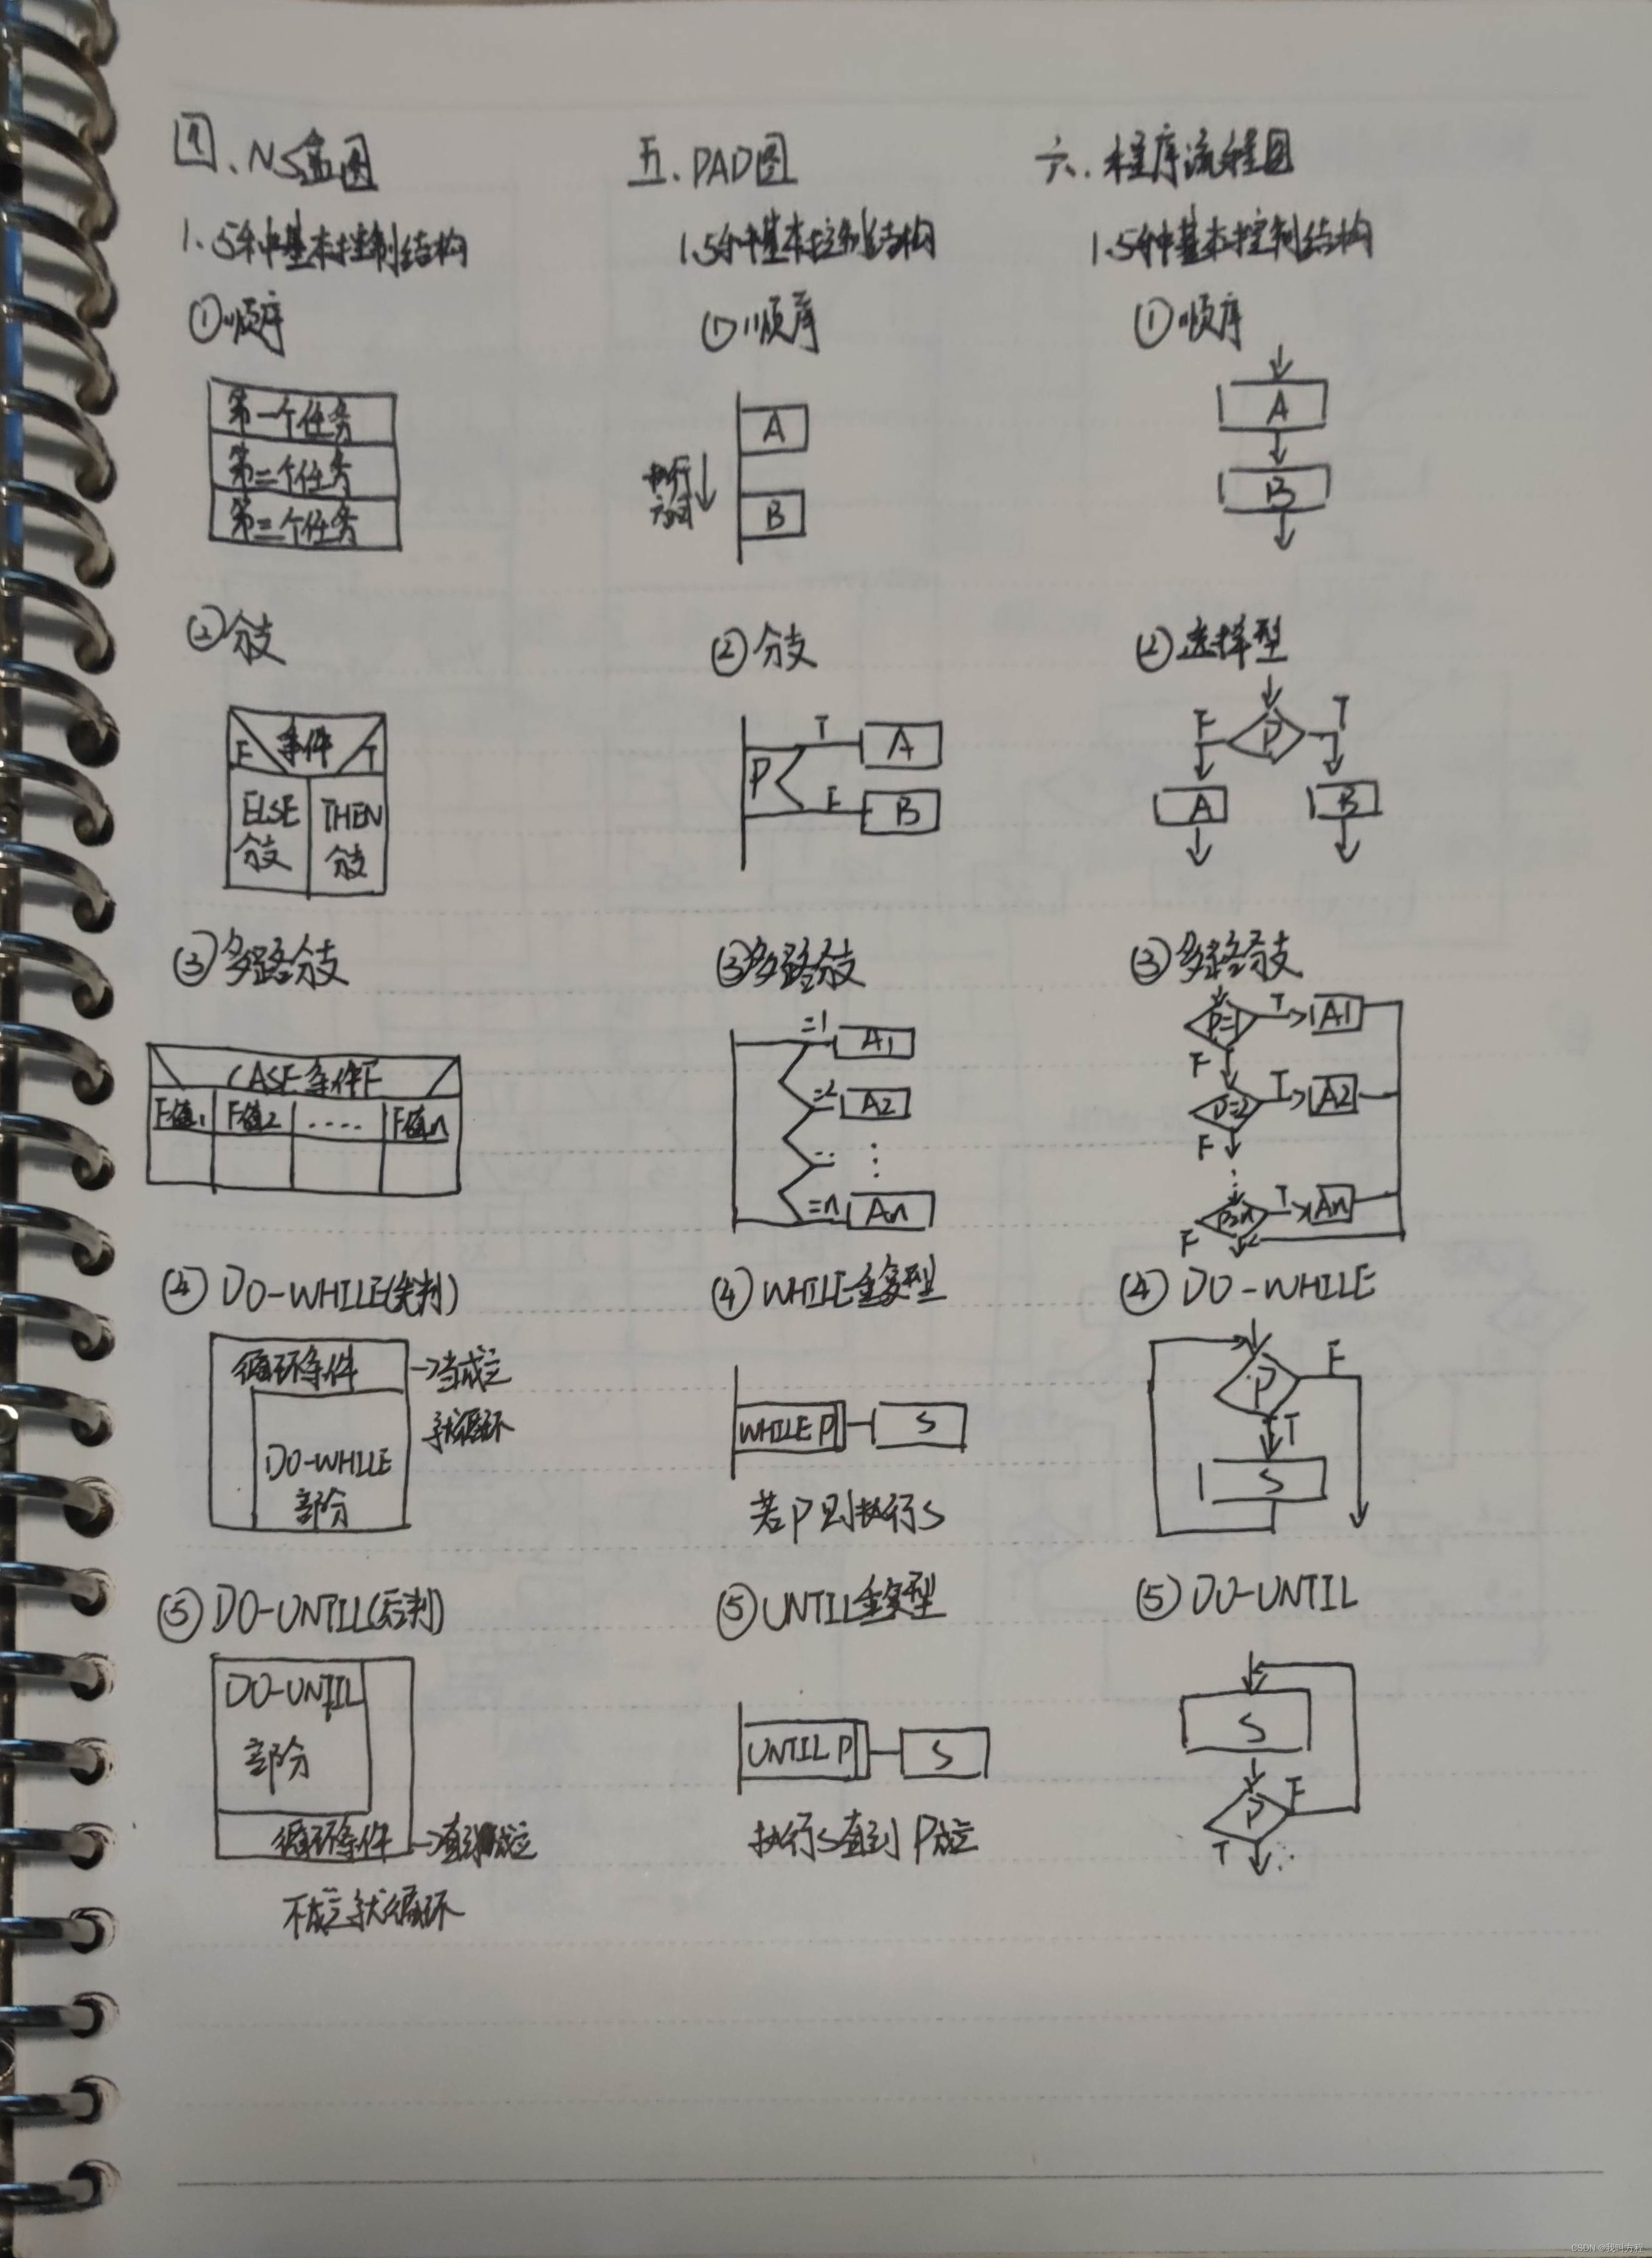 四.NS盒图
1.5种基本控制结构
①顺序
第一个任务
第二个任务
第三个任务
②分支
F 条件 T
ELSE
分支
THEN
分支
③多路分支
CASE条件F
F值1 F值2 .... F值n
④DO-WHILE(先判)
循环条件 →当成立
就循环
DO-WHILE
部分
⑤DO-UNTIL(后判)
DO-UNTIL
部分
循环条件 →直到成立
不成立就循环
五.PAD图
1.5种基本控制结构
①顺序
A
执行
方向
B
②分支
P
T A
F B
③多路分支
=1 A1
=2 A2
: :
=n An
④WHILE重复型
WHILE P S
若P则执行S
⑤UNTIL重复型
UNTIL P S
执行S直到P成立
六.程序流程图
1.5种基本控制结构
①顺序
A
B
②选择型
F P T
A B
③多路分支
P=1 T A1
F
P=2 T A2
F
:
P=n T An
F
④DO-WHILE
P F
T
S
⑤DO-UNTIL
S
P F
T
CSDN @我叫方程